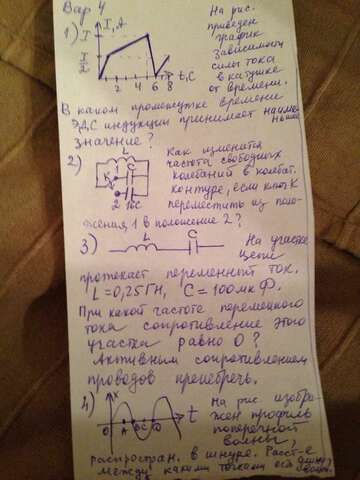 Вар 4
На рис.
1) I I, A
приведен
график
зависимости
силы тока
в катушке
2 4 6 8 t, c
от времени.
В каком промежутке времени
ЭДС индукции принимает наименьшее
значение?
2) L
Как изменится
частота свободных
C
колебаний в колебат.
K 1
контуре, если ключ K
2 16C
переместить из поло-
жения 1 в положение 2?
3) L C
На участке
цепи
протекает переменный ток.
L = 0,25 Гн, C = 100 мкФ.
При какой частоте переменного
тока сопротивление этого
участка равно 0?
Активным сопротивлением
проводов пренебречь.
4) x
На рис изобра-
O A B C D t
жен профиль
поперечной
волны,
распростран. в шнуре. Расст-е
между какими точками есть длина
волны.